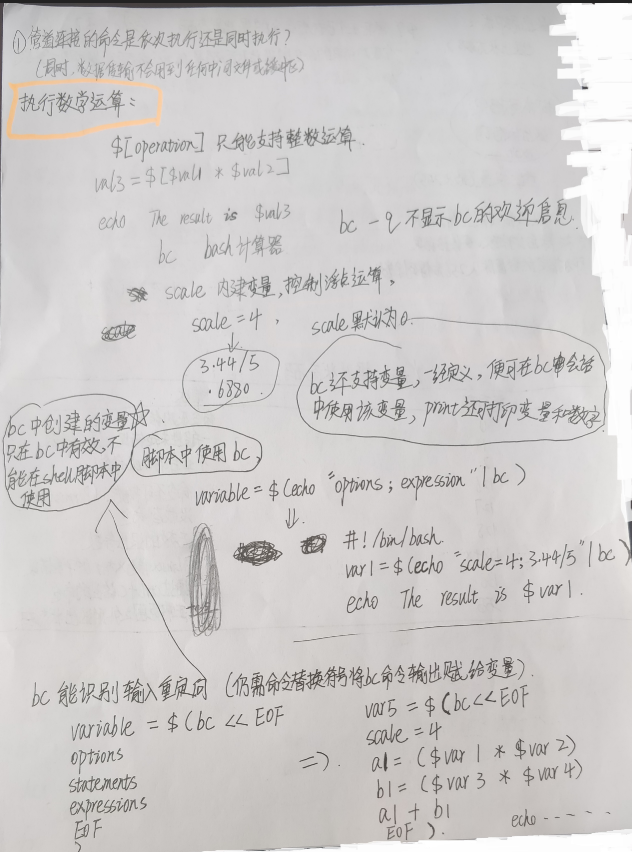 ①管道连接的命令是依次执行还是同时执行?
(同时,数据传输不会用到任何中间文件或缓冲区)
执行数学运算:
$[operation] 只能支持整数运算.
val3=$[$val1 * $val2]
echo The result is $val3
bc -q 不显示bc的欢迎信息.
bc bash计算器
scale 内建变量,控制浮点运算,
scale=4, scale默认为0.
3.44/5
.6880
bc还支持变量,一经定义,便可在bc会话
中使用该变量,print还可打印变量和数字
bc中创建的变量
只在bc中有效,不
能在shell脚本中
使用
脚本中使用bc,
variable=$(echo "options; expression" | bc)
#!/bin/bash
var1=$(echo "scale=4; 3.44/5" | bc)
echo The result is $var1.
bc能识别输入重定向 (仍需命令替换符号将bc命令输出赋给变量).
variable = $(bc << EOF
options
statements
expressions
EOF
)
=>.
var5 = $(bc << EOF
scale=4
a1= ($var1 * $var2)
b1= ($var3 * $var4)
a1 + b1
EOF ).
echo ------